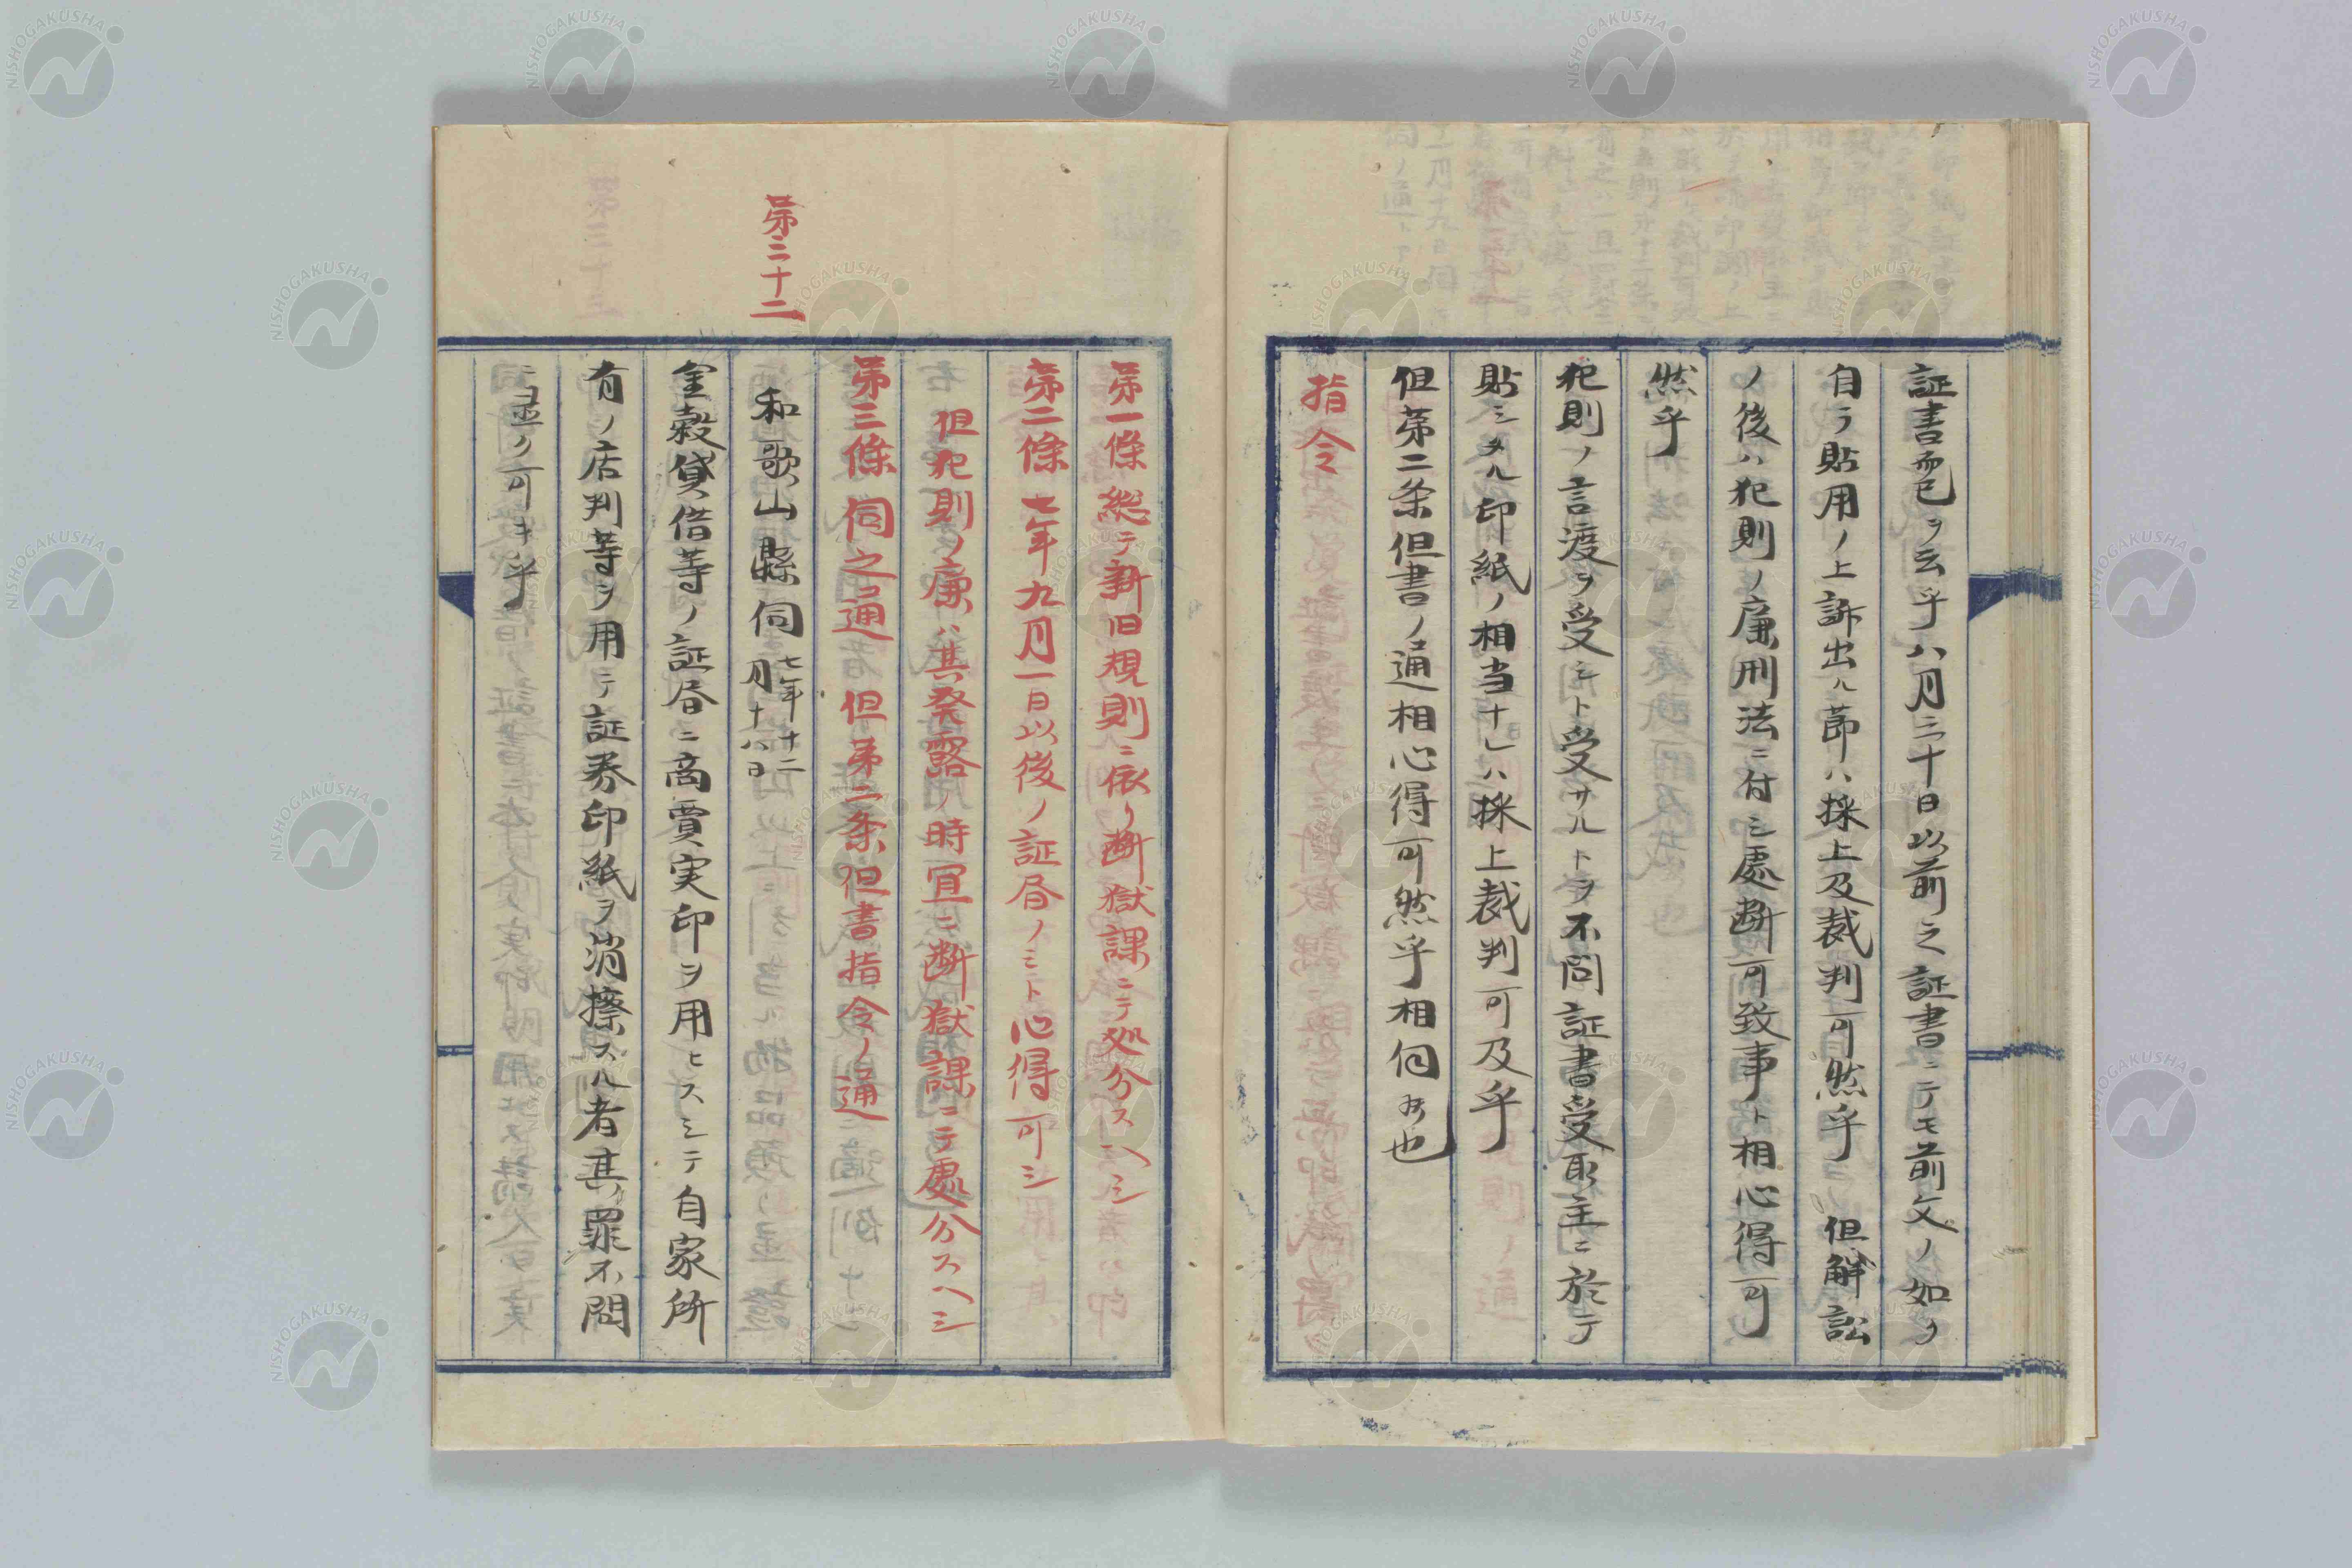 証書而已ヲ云乎八月三十日以前之証書ニテモ前文ノ如ク
自ラ貼用ノ上訴出ル節ハ採上及裁判可然乎 但解訟
ノ後ハ犯則ノ廉刑法ニ付シ處断可致事ト相心得可
然乎
犯則ノ言渡ヲ受シト受サルトヲ不問証書受取主ニ於テ
貼シタル印紙ノ相当ナレハ採上裁判可及乎
但第二条但書ノ通相心得可然乎相伺候也
指令
第一條 総テ新旧規則ニ依リ断獄課ニテ処分スヘシ
第二條 七年九月一日以後ノ証書ノミト心得可シ
但犯則ノ廉ハ其発露ノ時宜ニ断獄課ニテ處分スヘシ
第三條 伺之通 但第二条但書指令ノ通
第三十二
和歌山縣伺 七年十二月十八日
金穀貸借等ノ証書ニ商賈実印ヲ用ヒスシテ自家所
有ノ店判等ヲ用テ証券印紙ヲ消擦スル者其罪不問
ニ置ノ可キ乎
NISHOGAKUSHA